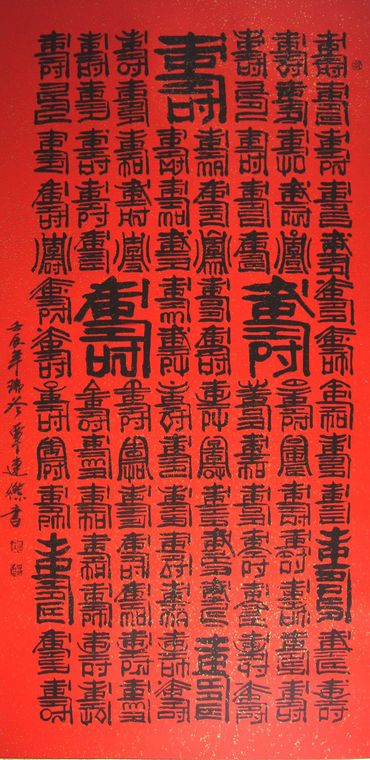 壽壽壽壽壽壽壽壽壽壽壽壽壽
壽壽壽壽壽壽壽壽壽壽壽壽
壽
壽壽壽壽壽壽壽壽壽壽壽壽
壽
壽壽壽壽壽壽壽壽壽壽壽
壽壽壽壽壽壽壽壽壽壽壽壽
壽壽壽壽壽壽壽壽壽壽壽壽
壽
壽壽壽壽壽壽壽壽壽壽壽壽
壽壽壽壽壽壽壽壽壽壽壽壽壽
壬辰年瑞冬覃連傑書